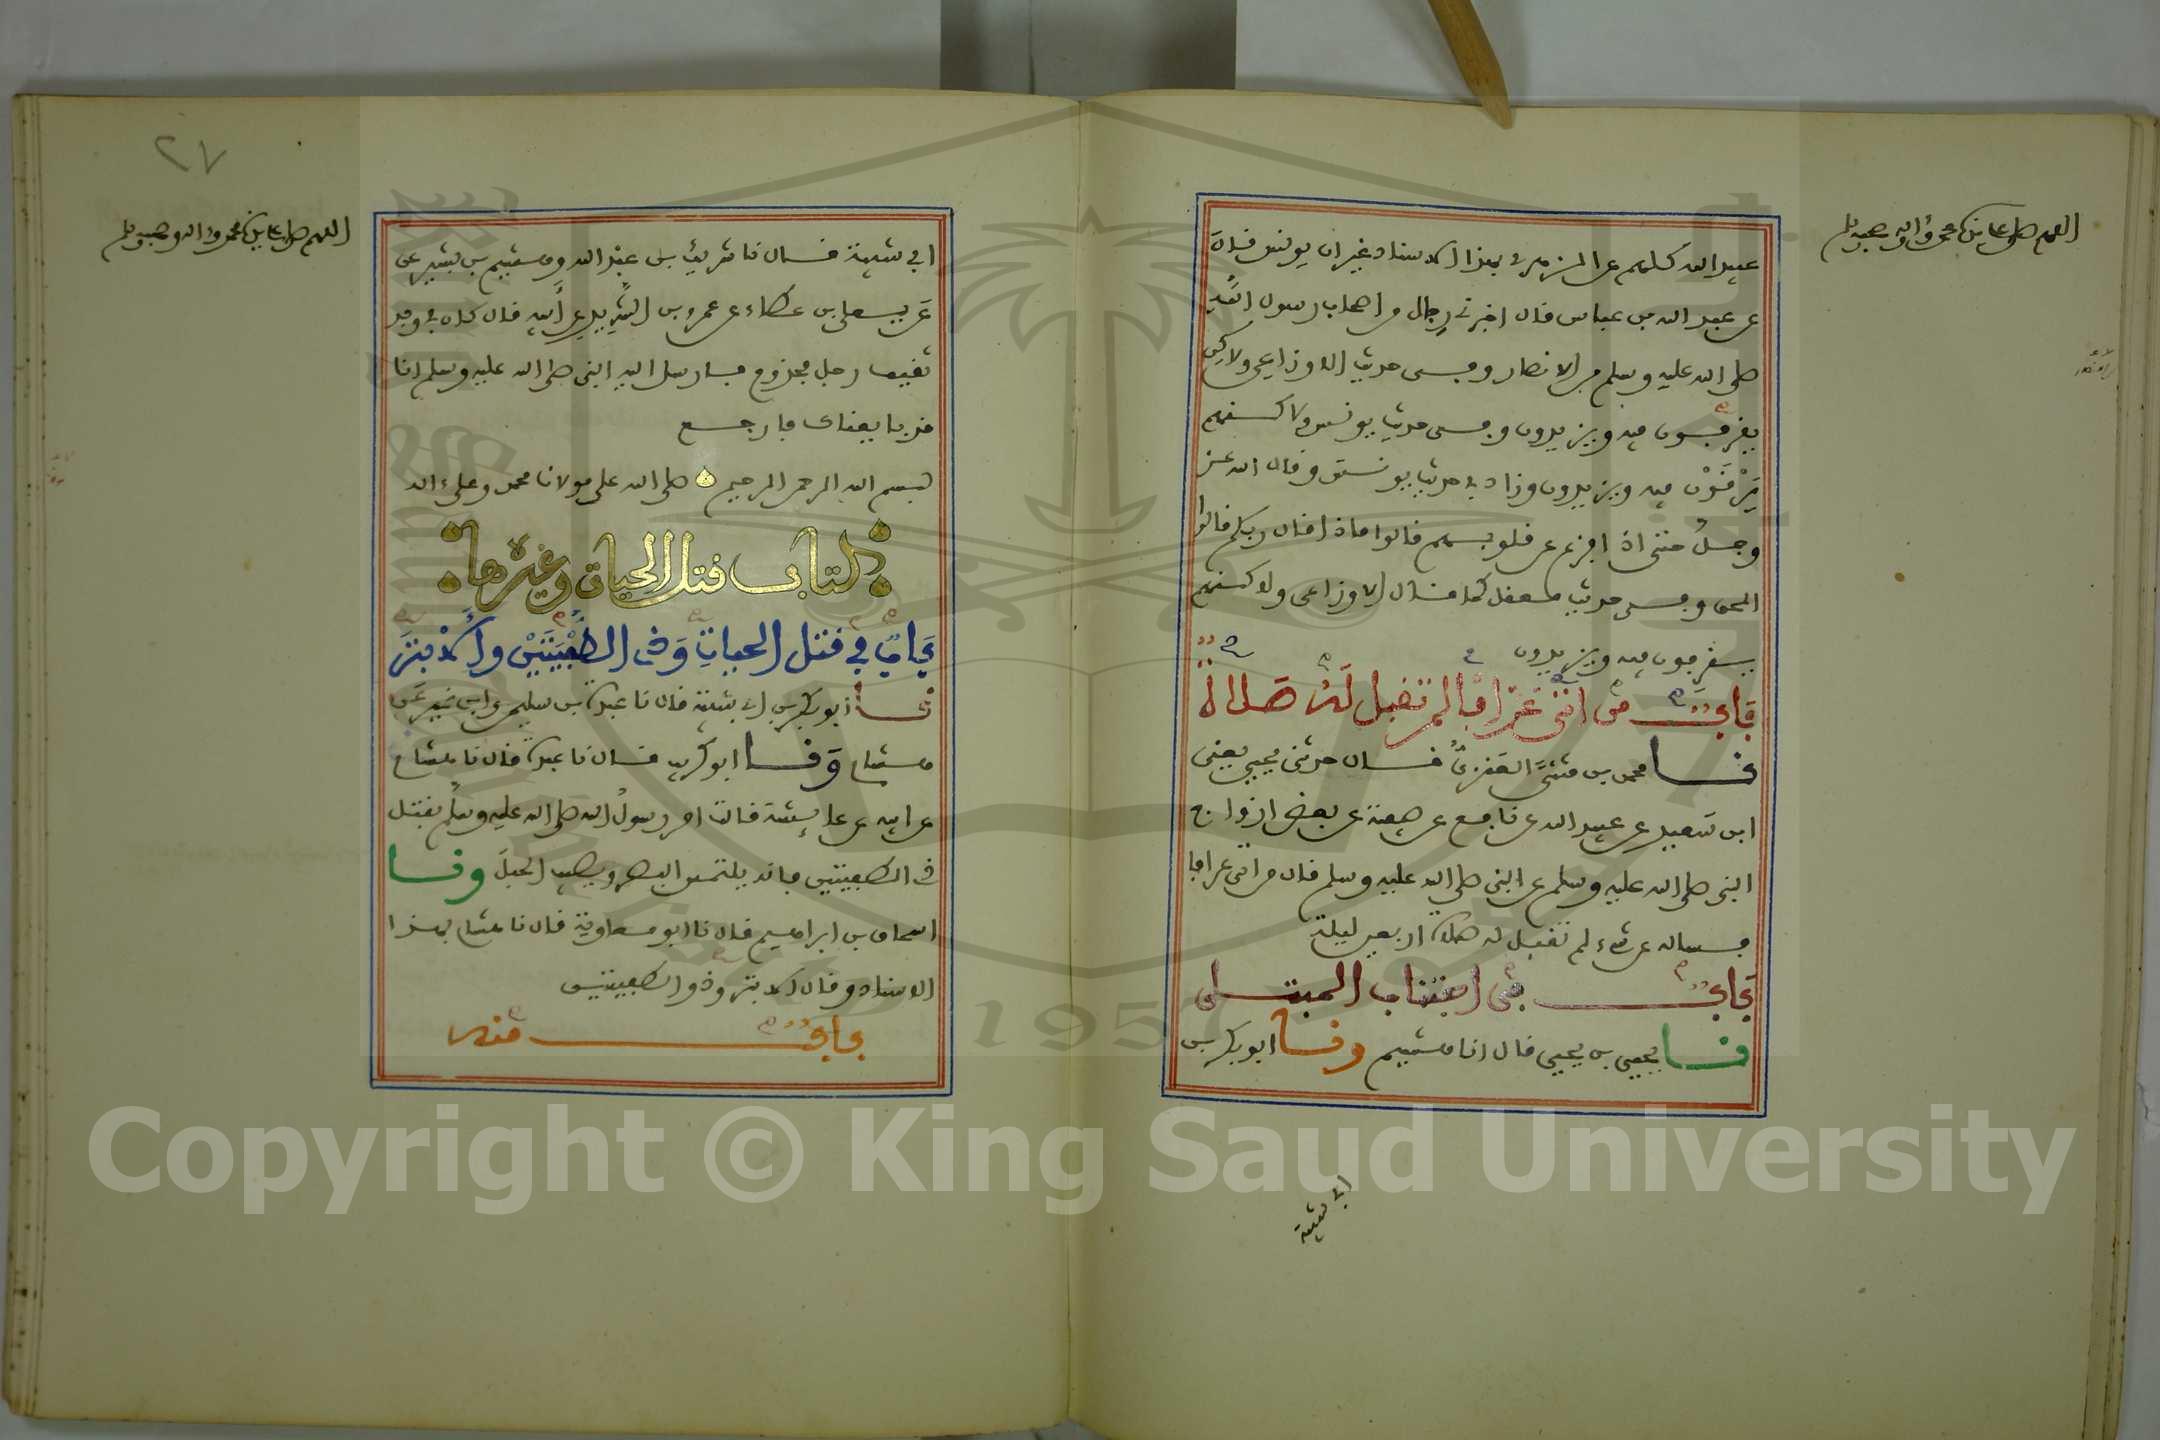 اللهم صل على سيدنا محمد وءاله وصحبه وسلم
عبيد الله كلهم عن الزهري بهذا الاسناد غير ان يونس قال
عن عبد الله بن عباس قال اخبرني رجال من اصحاب رسول الله
صلى الله عليه وسلم من الانصار وفي حديث الاوزاعي ولاكن
يقرفون فيه ويزيدون وفي حديث يونس ولاكنهم
يرقون فيه ويزيدون وزاد في حديث يونس وقال الله عز
وجل حتى اذا فزع عن قلوبهم قالوا ماذا قال ربكم قالوا
الحق وفي حديث معقل كما قال الاوزاعي ولاكنهم
يقرفون فيه ويزيدون
باب من اتى عرافا لم تقبل له صلاة
نا محمد بن مثنى العنزي قال حدثني يحيى يعني
ابن سعيد عن عبيد الله عن نافع عن صفية عن بعض ازواج
النبي صلى الله عليه وسلم عن النبي صلى الله عليه وسلم قال من اتى عرافا
فساله عن شيء لم تقبل له صلاة اربعين ليلة
باب في اجتناب المبتلى
نا يحيى بن يحيى قال انا هشيم ونا ابو بكر بن
ابي شيبة
٢٧
اللهم صل على سيدنا محمد وءاله وصحبه وسلم
ابي شيبة قال نا شريك بن عبد الله وهشيم بن بشير عن
عن يعلى بن عطاء عن عمرو بن الشريد عن ابيه قال كان في وفد
ثقيف رجل مجذوم فارسل اليه النبي صلى الله عليه وسلم انا
قد بايعناك فارجع
بسم الله الرحمن الرحيم صلى الله على مولانا محمد وعلى ءاله
كتاب قتل الحيات وغيرها
باب في قتل الحيات وذي الطفيتين والابتر
نا ابو بكر بن ابي شيبة قال نا عبدة بن سليمن وابن نمير عن
هشام ونا ابو كريب قال نا عبدة قال نا هشام
عن ابيه عن عايشة قالت امر رسول الله صلى الله عليه وسلم بقتل
ذي الطفيتين فانه يلتمس البصر ويصيب الحبل ونا
اسحاق بن ابراهيم قال نا ابو معاوية قال نا هشام بهذا
الاسناد وقال الابتر وذو الطفيتين
باب منه
1957
Copyright © King Saud University